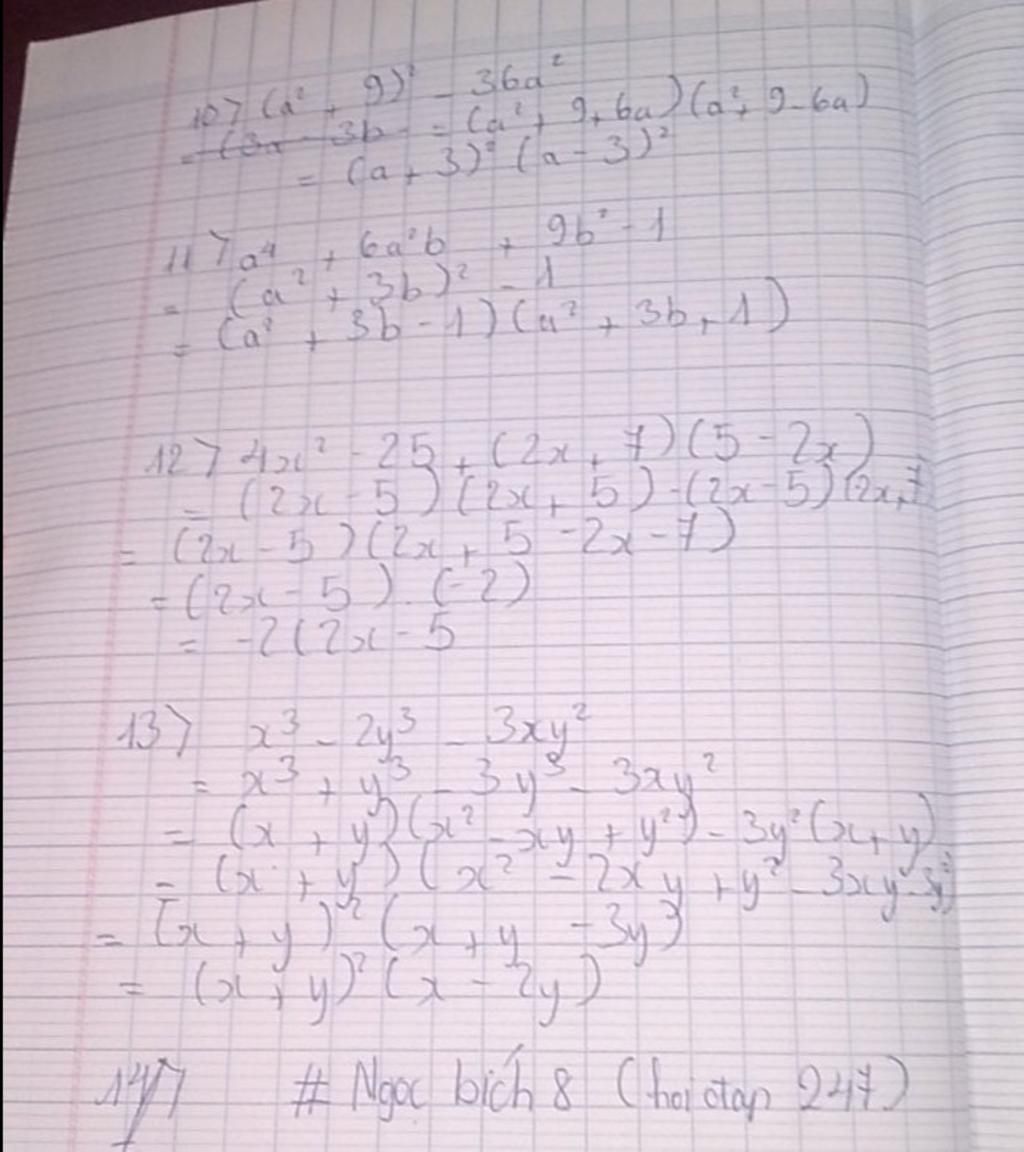 10) (a² + 9)² - 36a²
= (3a - 3b = (a² + 9 + 6a)(a² + 9 - 6a)
= (a + 3)² (a - 3)²
11) a⁴ + 6a²b + 9b² - 1
= (a² + 3b)² - 1
= (a² + 3b - 1)(a² + 3b + 1)
12) 4x² - 25 + (2x + 7)(5 - 2x)
= (2x - 5)(2x + 5) - (2x - 5)(2x + 7
= (2x - 5)(2x + 5 - 2x - 7)
= (2x - 5) . (-2)
= -2(2x - 5
13) x³ - 2y³ - 3xy²
= x³ + y³ - 3y³ - 3xy²
= (x + y)(x² - xy + y²) - 3y²(x + y)
= (x + y)(x² - 2xy + y² - 3xy - 3y²)
= (x + y)² (x + y - 3y)
= (x + y)² (x - 2y)
14) # Ngoc bích 8 (hoidap 247)